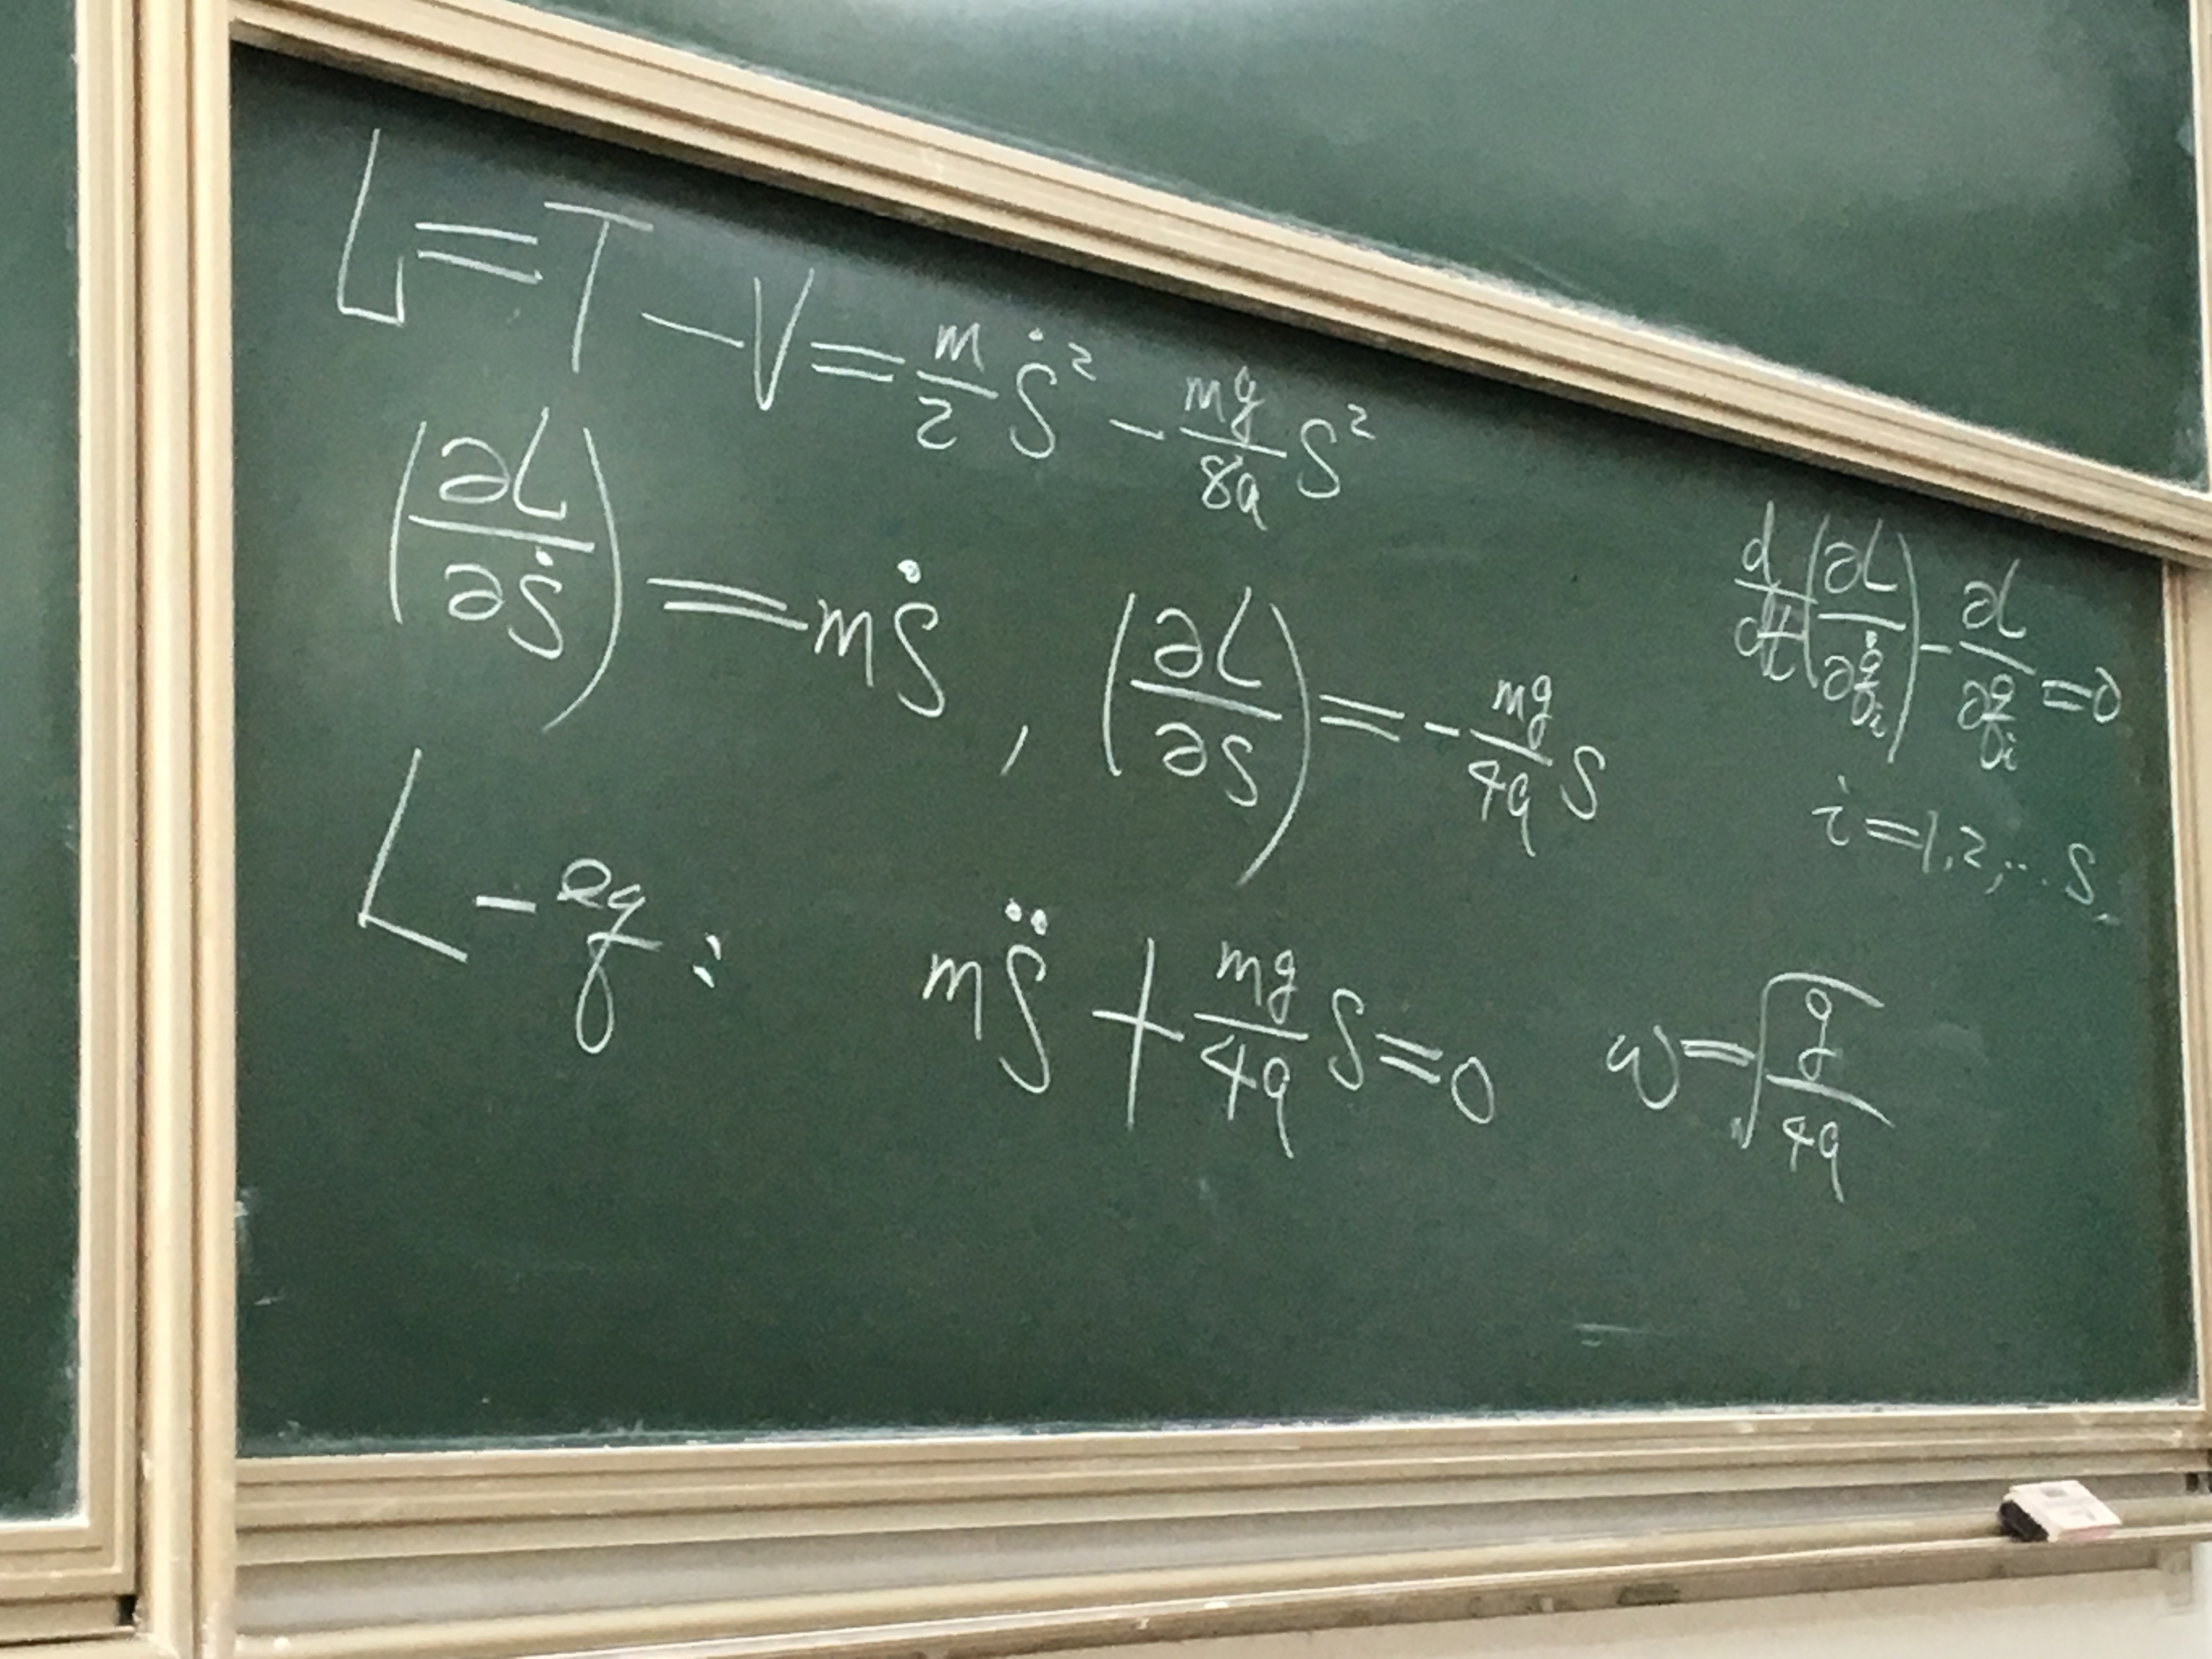 L=T-V=m/2 ṡ² - mg/8a s²
(∂L/∂ṡ)=mṡ, (∂L/∂s)=-mg/4a s
d/dt(∂L/∂q̇ᵢ)-∂L/∂qᵢ=0
i=1,2,...s.
L-eq: ms̈+mg/4a s=0 ω=√(g/4a)